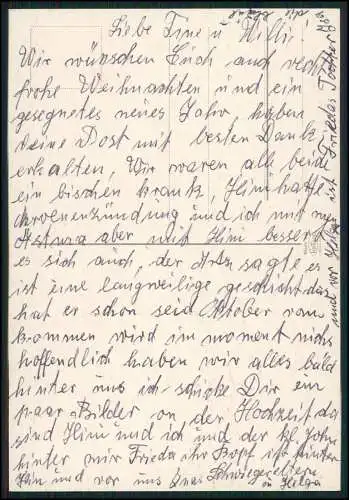 Liebe Tine u Willi!
Wir wünschen Euch auch recht
frohe Weihnachten und ein
gesegnetes neues Jahr haben
deine Post mit besten Dank
erhalten, Wir waren alle beid
ein bischen krank, Heini hatte
nervenenzündung und ich mit m
Astma aber mit Heini bessert
es sich auch, der Artz sagte es
ist eine langweilige geschicht das
hat er schon seid Oktober vom
kommen wird im moment nichs
hoffendlich haben wir alles bald
hinter uns ich schicke Dir ein
paar Bilder on der Hochzeit da
sind Heini und ich und der kl. John
hinter mir Frieda ihr hinter
Heini und vor uns Schwiegereltern
u Helga
und vor Helga ist Friedas Tochter